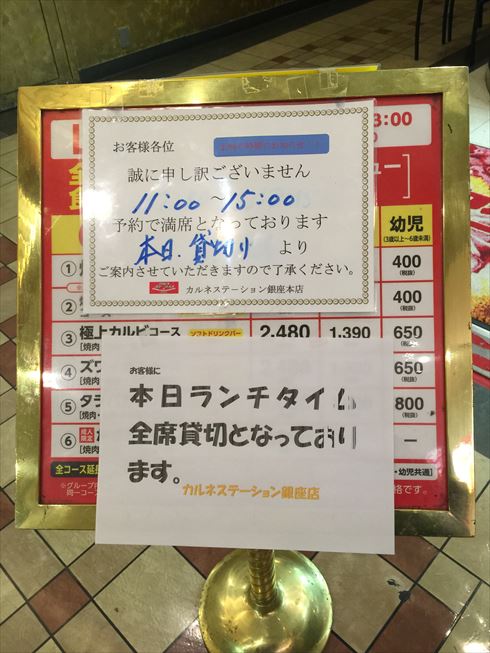 3:00
お客様各位
誠に申し訳ございません
11:00～15:00
予約で満席となっております
本日.貸切り より
ご案内させていただきますので了承ください。
カルネステーション銀座本店
幼児
(3歳以上〜6歳未満)
① 400
(税抜)
② 400
(税抜)
③ 極上カルビコース ソフトドリンクバー 2,480 1,390 650
[焼肉 (税抜)
④ ズワ 650
[焼肉 (税抜)
⑤ タラ 800
[焼肉・ (税抜)
⑥ 成人限定 —
[焼肉
全コース延長 ・幼児共通]
※グループ
同一コース
お客様に
本日ランチタイム
全席貸切となっており
ます。
カルネステーション銀座店